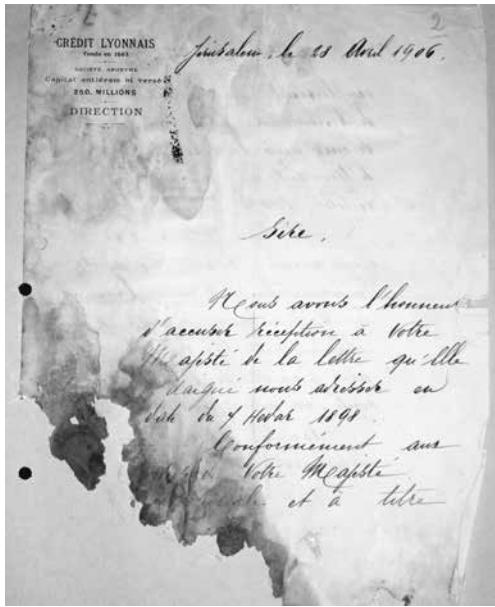 2
CRÉDIT LYONNAIS
Fondé en 1863
SOCIÉTÉ ANONYME
Capital entièrement versé
250. MILLIONS
DIRECTION
Jérusalem, le 28 Avril 1906.
Sire,
Nous avons l'honneur
d'accuser réception à Votre
Majesté de la lettre qu'Elle
daigné nous adresser en
date du 7 Hedar 1898.
Conformément aux
Votre Majesté
et à titre